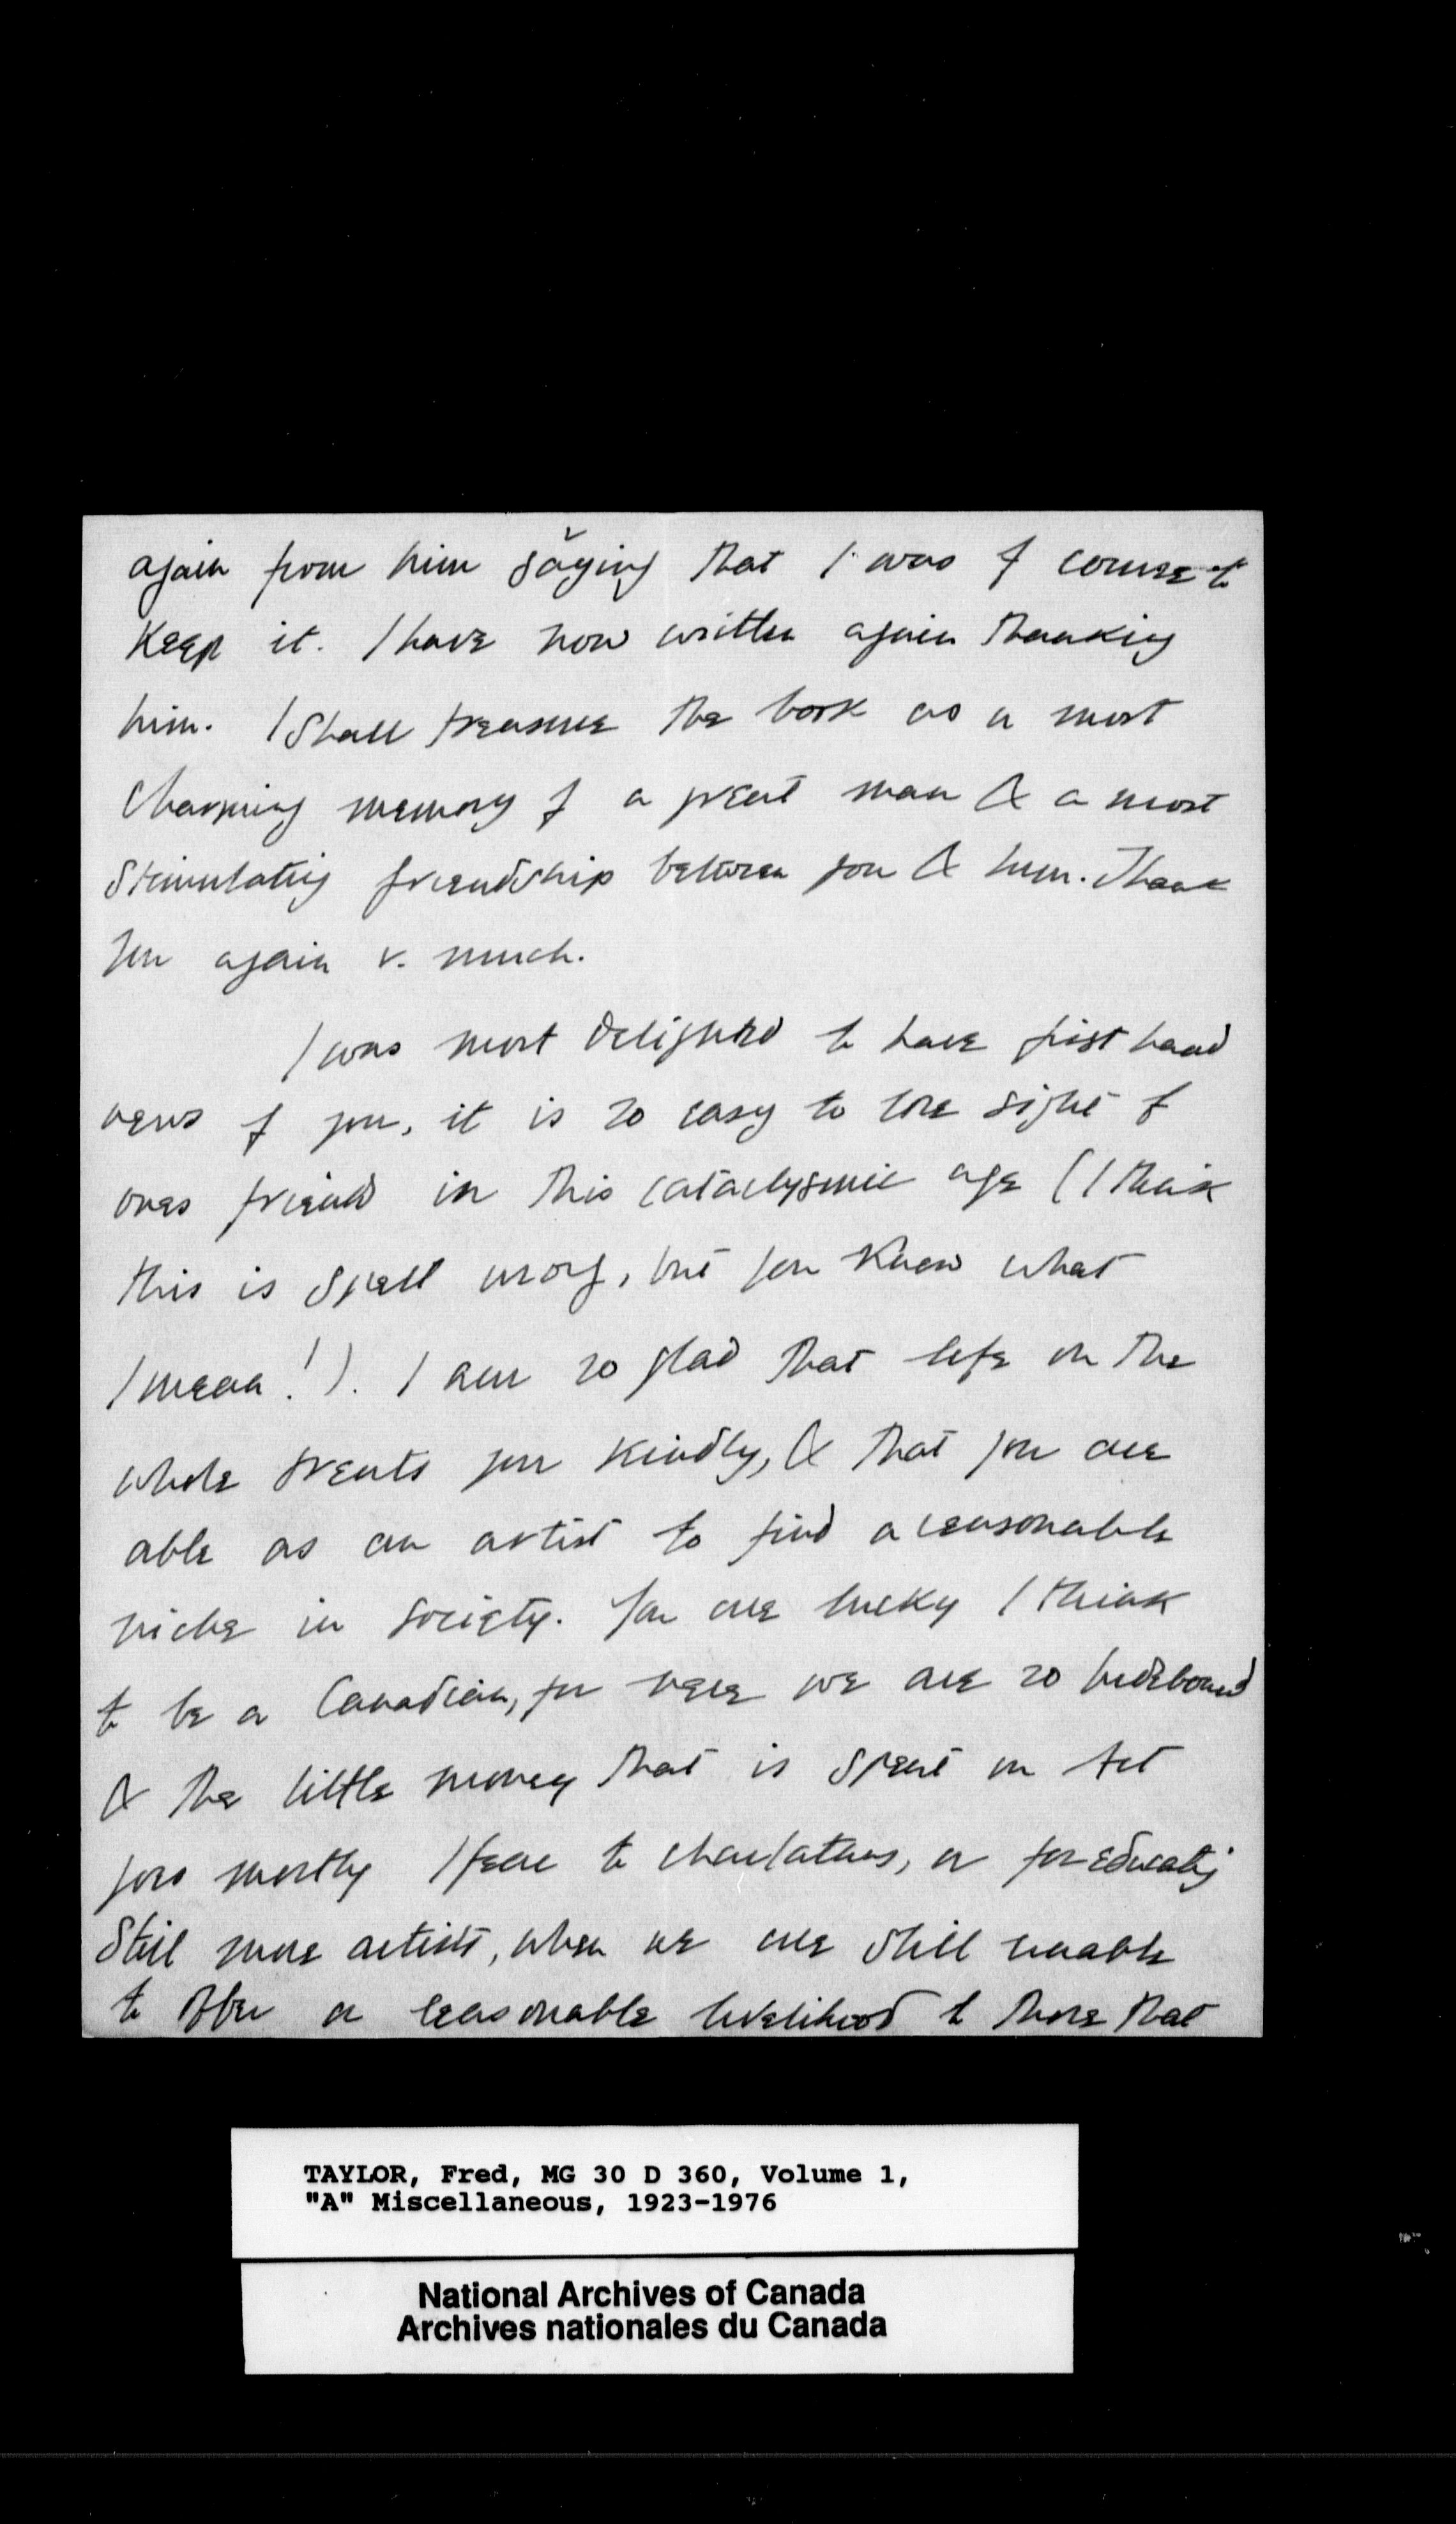 again from him saying that I was of course to
keep it. I have now written again thanking
him. I shall treasure the book as a most
charming memory of a great man & a most
stimulating friendship between you & him. Thank
you again v. much.
I was most delighted to have first hand
news of you, it is so easy to lose sight of
ones friends in this cataclysmic age (I think
this is spelt wrong, but you know what
I mean!). I am so glad that life on the
whole treats you kindly, & that you are
able as an artist to find a reasonable
niche in society. You are lucky I think
to be a Canadian, for here we are so hidebound
& the little money that is spent on Art
goes mostly I fear to charlatans, or for educating
still more artists, when we are still unable
to offer a reasonable livelihood to those that
TAYLOR, Fred, MG 30 D 360, Volume 1,
"A" Miscellaneous, 1923-1976
National Archives of Canada
Archives nationales du Canada